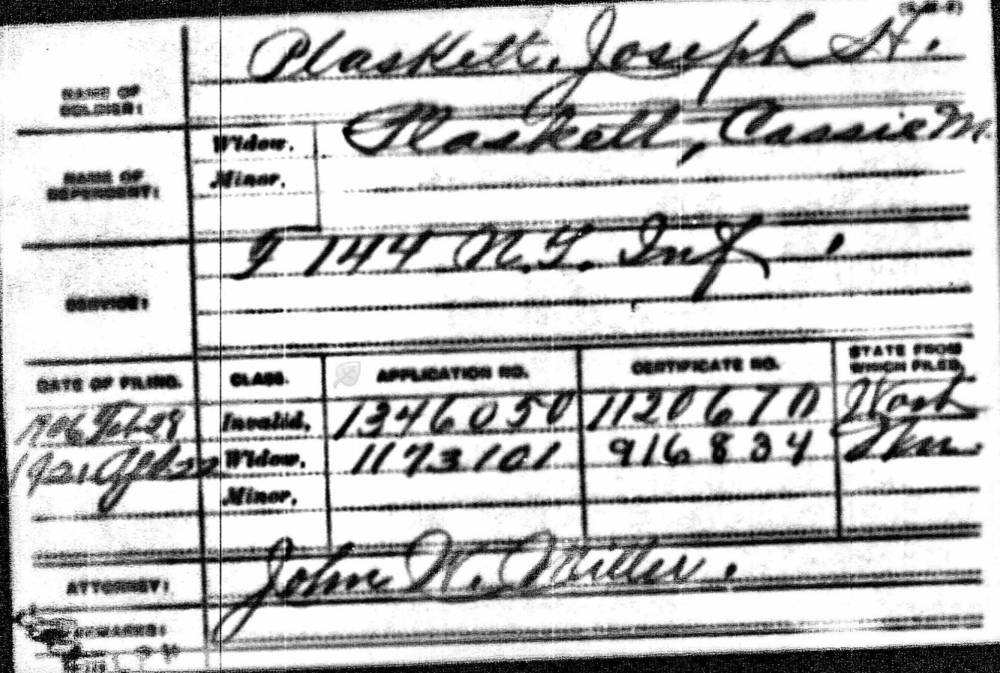 Plaskett, Joseph H.
NAME OF SOLDIER:
Plaskett, Cassie M.
NAME OF DEPENDENT:
Widow,
Minor,
144 Inf
SERVICE:
DATE OF FILING. CLASS. APPLICATION NO. CERTIFICATE NO. STATE FROM WHICH FILED.
1906 Feb 28 Invalid, 1346050 1120670 Wash
1921 Widow, 1173101 916834
Minor,
ATTORNEY: John W. Miller.
REMARKS: